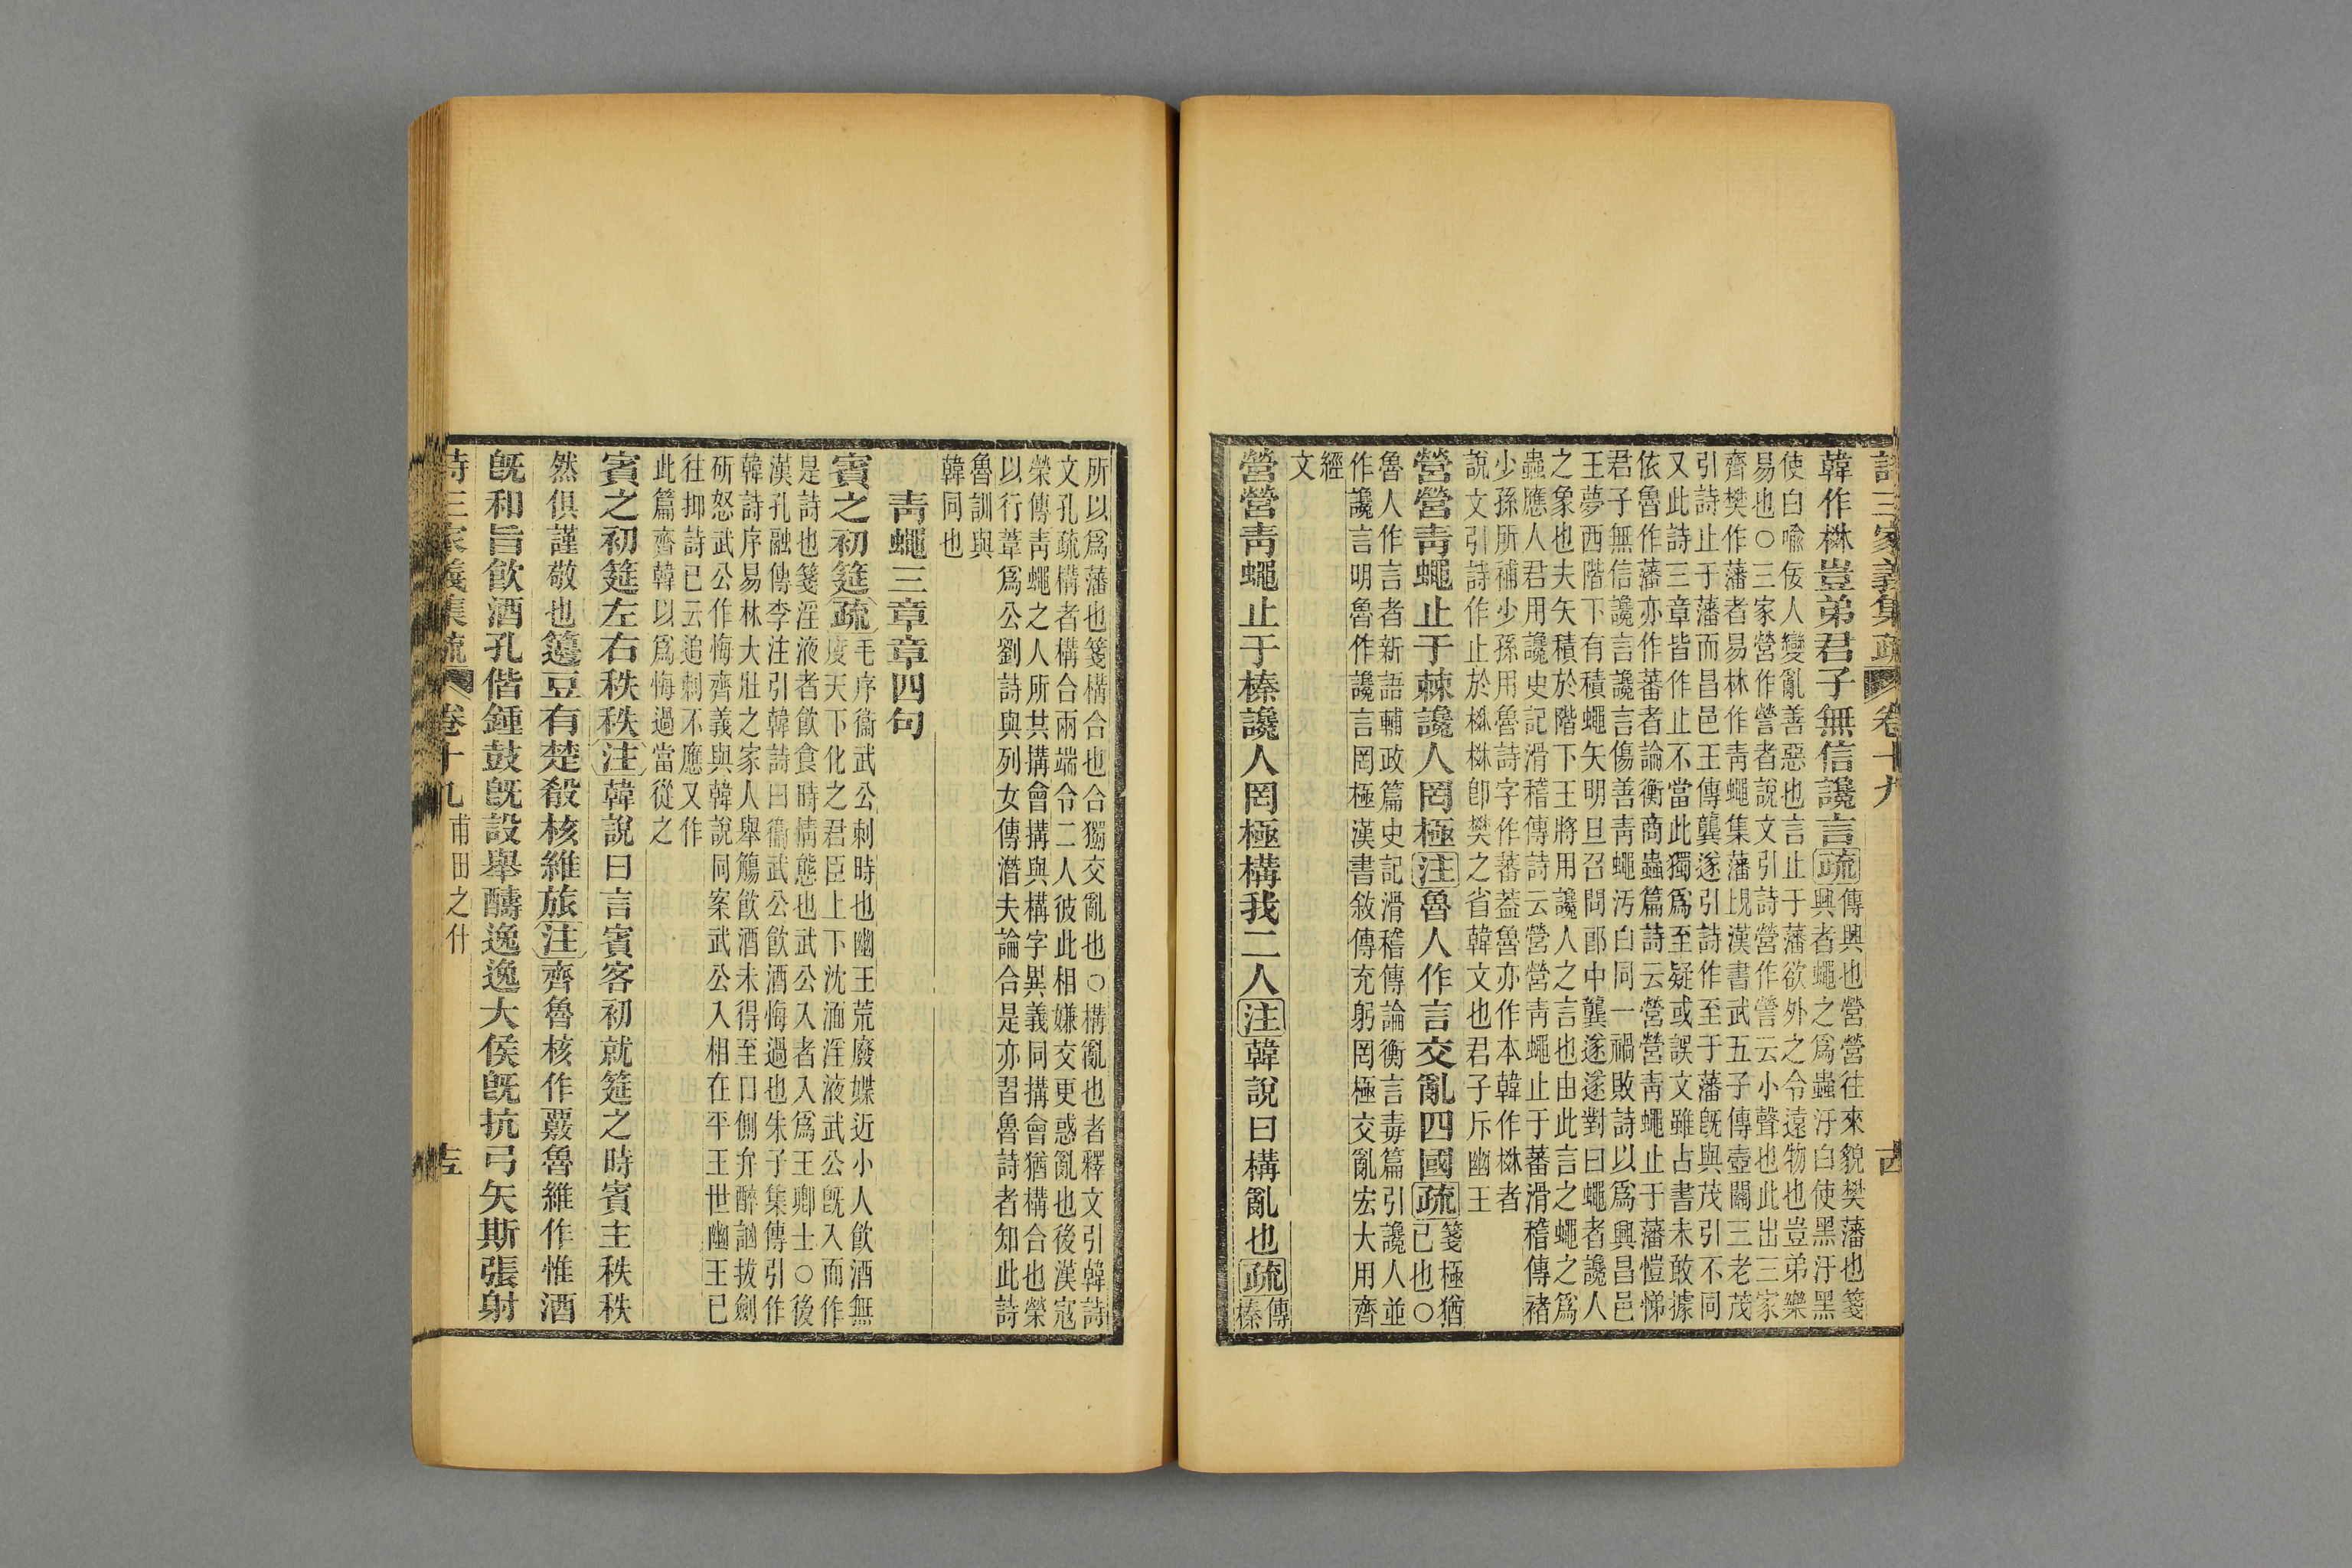 詩三家義集疏 卷十九 古
韓作楙豈弟君子無信讒言疏
傳興也營營往來貌樊藩也箋
興者蠅之為蟲汙白使黑汙黑
使白喻佞人變亂善惡也言止于藩欲外之令遠物也豈弟樂
易也○三家營作營者說文引詩營作營云小聲也此出三家
齊樊作藩者易林作青蠅集藩漢書武五子傳壺關三老茂
引詩止于藩而昌邑王傳龔遂引詩作至于藩旣與茂引不同
又此詩三章皆作止不當此獨爲至疑或誤文雖占書未敢據
依魯作藩亦作蕃者論衡商蟲篇詩云營營青蠅止于藩愷悌
君子無信讒言讒言傷善青蠅汚白同一禍敗詩以爲興昌邑
王夢西階下有積蠅矢明旦召問郎中龔遂遂對曰蠅者讒人
之象也夫矢積於階下王將用讒人之言也由此言之蠅之爲
蟲應人君用讒史記滑稽傳詩云營營青蠅止于蕃滑稽傳褚
少孫所補少孫用魯詩字作蕃蓋魯亦作本韓作楙者
說文引詩作止於楙楙卽樊之省韓文也君子斥幽王
營營靑蠅止于棘讒人罔極注魯人作言交亂四國疏
箋極猶
已也○
魯人作言者新語輔政篇史記滑稽傳論衡言毒篇引讒人並
作讒言明魯作讒言罔極漢書敘傳充躬罔極交亂宏大用齊
經
文
營營靑蠅止于榛讒人罔極構我二人注韓說曰構亂也疏
傳
榛
所以爲藩也箋構合也合獨交亂也○構亂也者釋文引韓詩
文孔疏構者構合兩端令二人彼此相嫌交更惑亂也後漢寇
榮傳靑蠅之人所共搆會搆與構字異義同搆會猶構合也榮
以行葦爲公劉詩與列女傳潛夫論合是亦習魯詩者知此詩
魯訓與
韓同也
靑蠅三章章四句
賓之初筵疏
毛序衞武公刺時也幽王荒廢媟近小人飮酒無
度天下化之君臣上下沈湎淫液武公旣入而作
是詩也箋淫液者飮食時情態也武公入者入爲王卿士○後
漢孔融傳李注引韓詩曰衞武公飮酒悔過也朱子集傳引作
韓詩序易林大壯之家人舉觴飮酒未得至口側弁醉訩拔劍
斫怒武公作悔齊義與韓說同案武公入相在平王世幽王已
往抑詩已云追刺不應又作
此篇齊韓以爲悔過當從之
賓之初筵左右秩秩注韓說曰言賓客初就筵之時賓主秩秩
然俱謹敬也籩豆有楚殽核維旅注齊魯核作覈魯維作惟酒
旣和旨飮酒孔偕鍾鼓旣設舉醻逸逸大侯旣抗弓矢斯張射
詩三家義集疏 卷十九 甫田之什